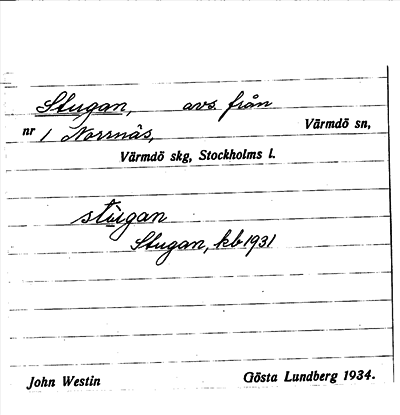 Stugan, avs. från
nr 1 Norrnäs, Värmdö sn,
Värmdö skg, Stockholms l.
stùgan
Stugan, kb 1931
John Westin Gösta Lundberg 1934.